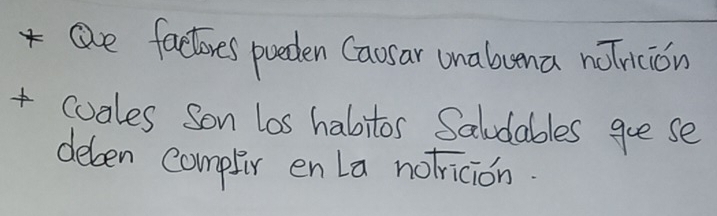 * Que factores pueden Causar unabuena notrición
+ cuales son los habitos Saludables que se
deben complir en La notrición.